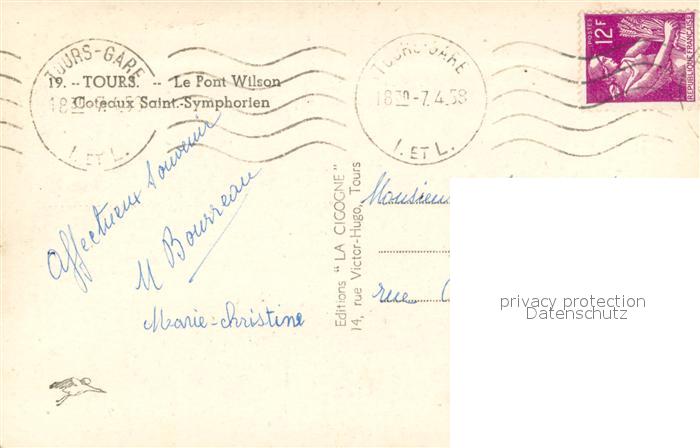 TOURS-GARE
18 30 -7.4.58
I. ET L.
TOURS-GARE
18 30 -7.4.58
I. ET L.
POSTES
12F
REPUBLIQUE FRANÇAISE
19. -- TOURS. -- Le Pont Wilson
Coteaux Saint-Symphorien
Affectueux souvenir
M Bourreau
Marie-Christine
Editions " LA CIGOGNE "
14, rue Victor-Hugo, Tours
Monsieur
rue
privacy protection
Datenschutz